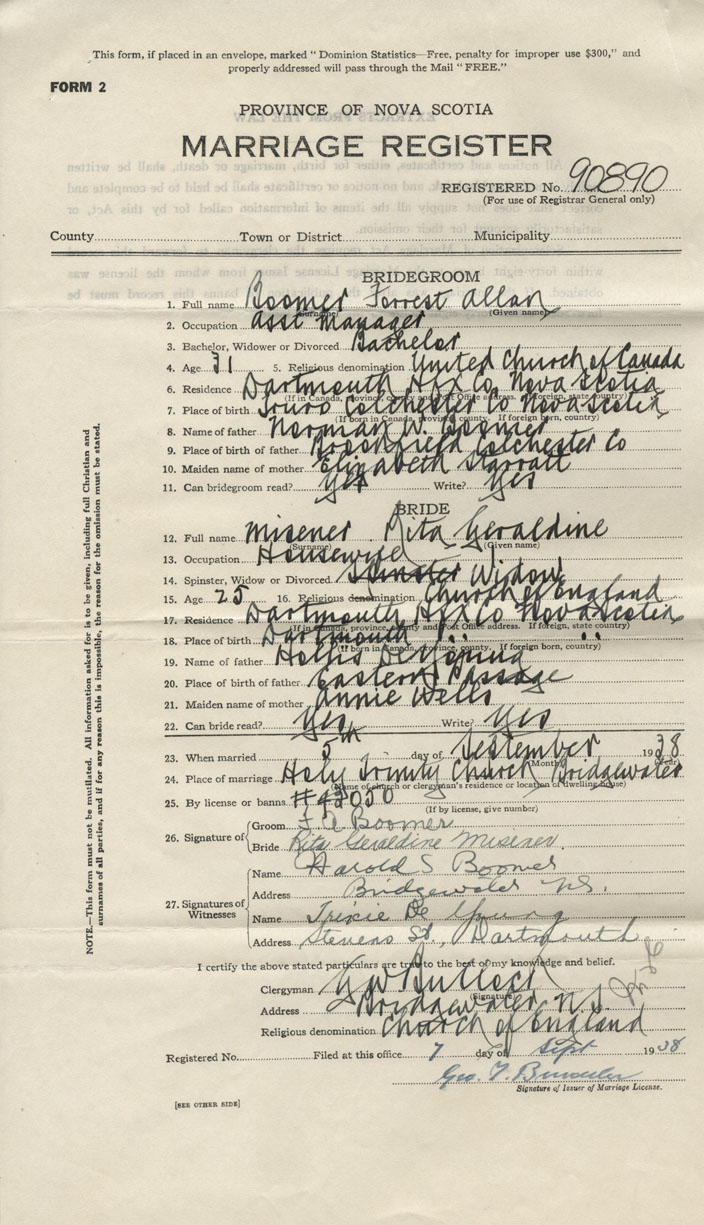 This form, if placed in an envelope, marked "Dominion Statistics—Free, penalty for improper use $300," and
properly addressed will pass through the Mail "FREE."
FORM 2
PROVINCE OF NOVA SCOTIA
MARRIAGE REGISTER
REGISTERED No. 90890
(For use of Registrar General only)
County Town or District Municipality
BRIDEGROOM
1. Full name Boomer Forrest Allan
(Surname) (Given name)
2. Occupation Asst Manager
3. Bachelor, Widower or Divorced Bachelor
4. Age 31 5. Religious denomination United Church of Canada
6. Residence Dartmouth Hfx Co Nova Scotia
(If in Canada, province, county and Post Office address. If foreign, state country)
7. Place of birth Truro Colchester Co Nova Scotia
(If born in Canada, province, county. If foreign born, country)
8. Name of father Norman W. Boomer
9. Place of birth of father Brookfield Colchester Co
10. Maiden name of mother Elizabeth Starratt
11. Can bridegroom read? Yes Write? Yes
BRIDE
12. Full name Misener Rita Geraldine
(Surname) (Given name)
13. Occupation Housewife
14. Spinster, Widow or Divorced Spinster Widow
15. Age 25 16. Religious denomination Church of England
17. Residence Dartmouth Hfx Co Nova Scotia
(If in Canada, province, county and Post Office address. If foreign, state country)
18. Place of birth Dartmouth " "
(If born in Canada, province, county. If foreign born, country)
19. Name of father Hollis DeYoung
20. Place of birth of father Eastern Passage
21. Maiden name of mother Annie Wells
22. Can bride read? Yes Write? Yes
23. When married 5th day of September 1938
(Month) (Year)
24. Place of marriage Holy Trinity Church Bridgewater
(Name of church or clergyman's residence or location of dwelling house)
25. By license or banns #43050
(If by license, give number)
26. Signature of Groom F A Boomer
Bride Rita Geraldine Misener
27. Signatures of Witnesses
Name Harold S Boomer
Address Bridgewater N.S.
Name Trixie De Young
Address Stevens St., Dartmouth
I certify the above stated particulars are true to the best of my knowledge and belief.
Clergyman G W Bulloch
(Signature)
Address Bridgewater N.S.
Religious denomination Church of England
Registered No. Filed at this office 7 day of Sept 1938
Geo. T.
Signature of Issuer of Marriage License.
[SEE OTHER SIDE]
NOTE.—This form must not be mutilated. All information asked for is to be given, including full Christian and
surnames of all parties, and if for any reason this is impossible, the reason for the omission must be stated.